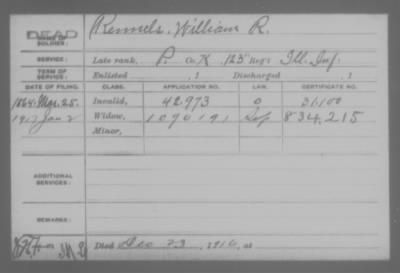 DEAD
NAME OF SOLDIER: Rennels, William R.
SERVICE: Late rank, P. Co. K, 123" Reg't Ill. Inf.
TERM OF SERVICE: Enlisted , 1 Discharged , 1
DATE OF FILING. CLASS. APPLICATION NO. LAW. CERTIFICATE NO.
1864 Mar. 25. Invalid, 42,973 31,100
1917 Jan 2 Widow, 1090191 834,215
Minor,
ADDITIONAL SERVICES:
REMARKS:
Died Dec 23, 1916, at